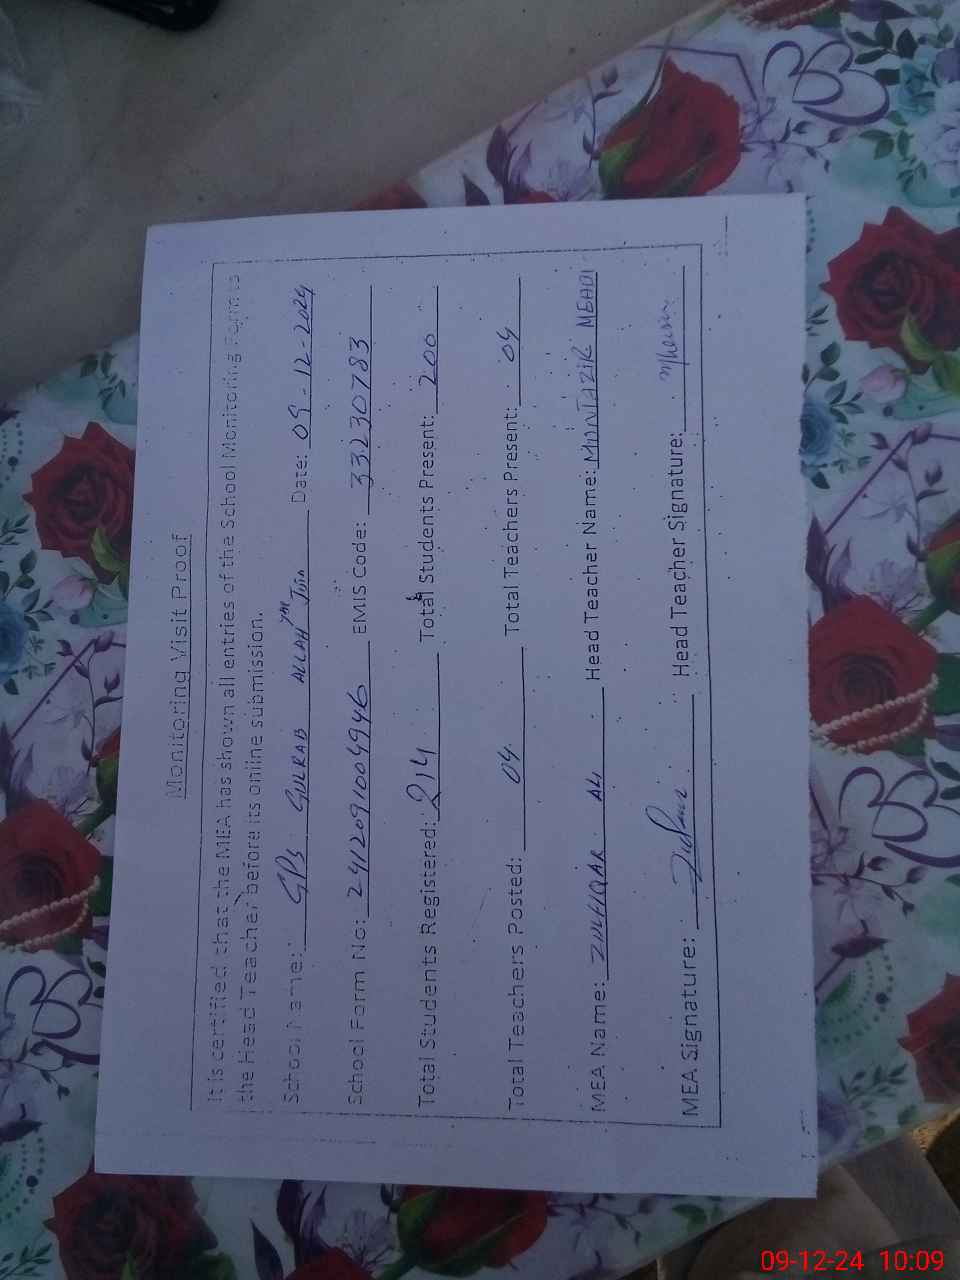 Monitoring Visit Proof
It is certified that the MEA has shown all entries of the School Monitoring Form to
the Head Teacher before its online submission.
School Name: GPS GULRAB ALLAH Date: 09-12-2024
School Form No: 2412091004946 EMIS Code: 33230783
Total Students Registered: 214 Total Students Present: 200
Total Teachers Posted: 04 Total Teachers Present: 04
MEA Name: ZULFIQAR ALI Head Teacher Name: MUNTAZIR MEHDI
MEA Signature: Head Teacher Signature:
09-12-24 10:09